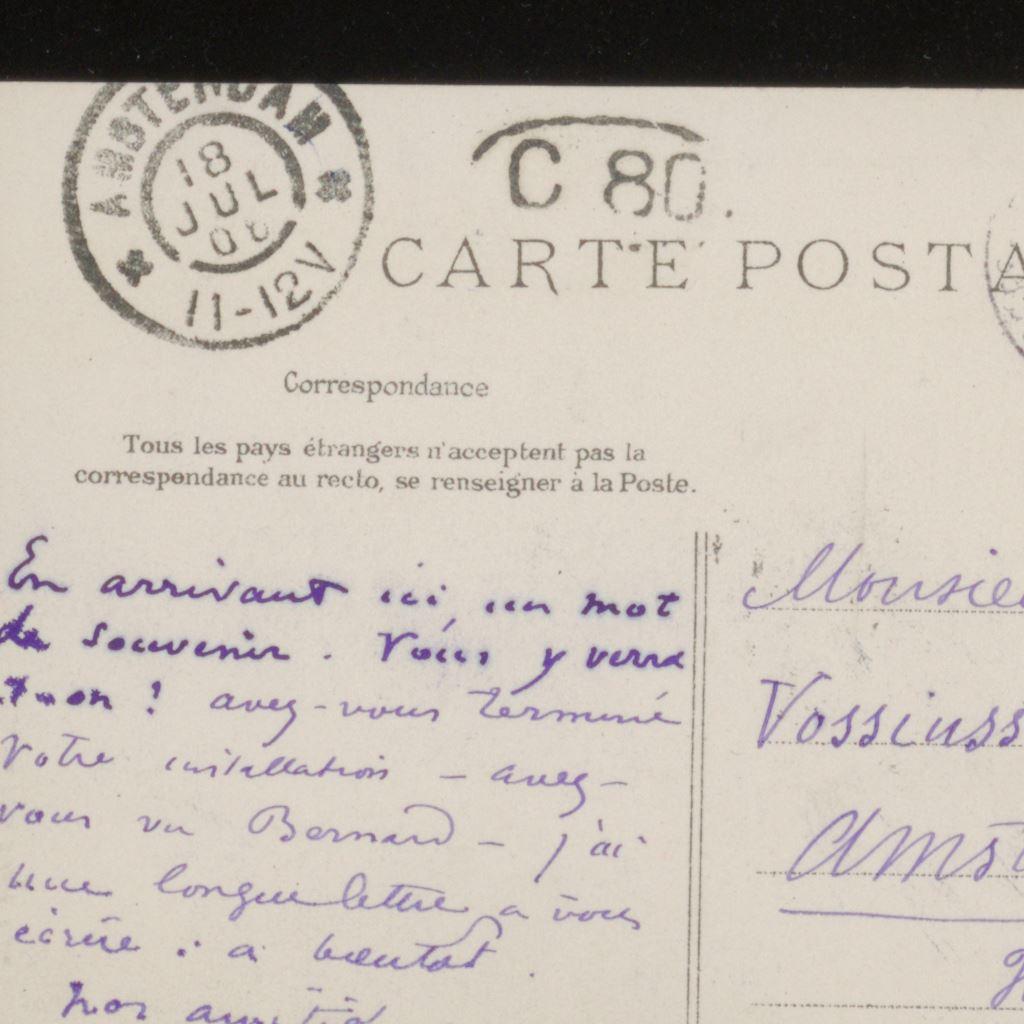 AMSTERDAM
18
JUL
11-12V
C 80.
CARTE POSTA
Correspondance
Tous les pays étrangers n'acceptent pas la
correspondance au recto, se renseigner à la Poste.
En arrivant ici, un mot
de souvenir. Vous y verra
t-on ! avez-vous terminé
votre installation – avez-
vous vu Bernard – j'ai
une longue lettre a vous
écrire : a bientot.
Monsieu
Vossiuss
Amst